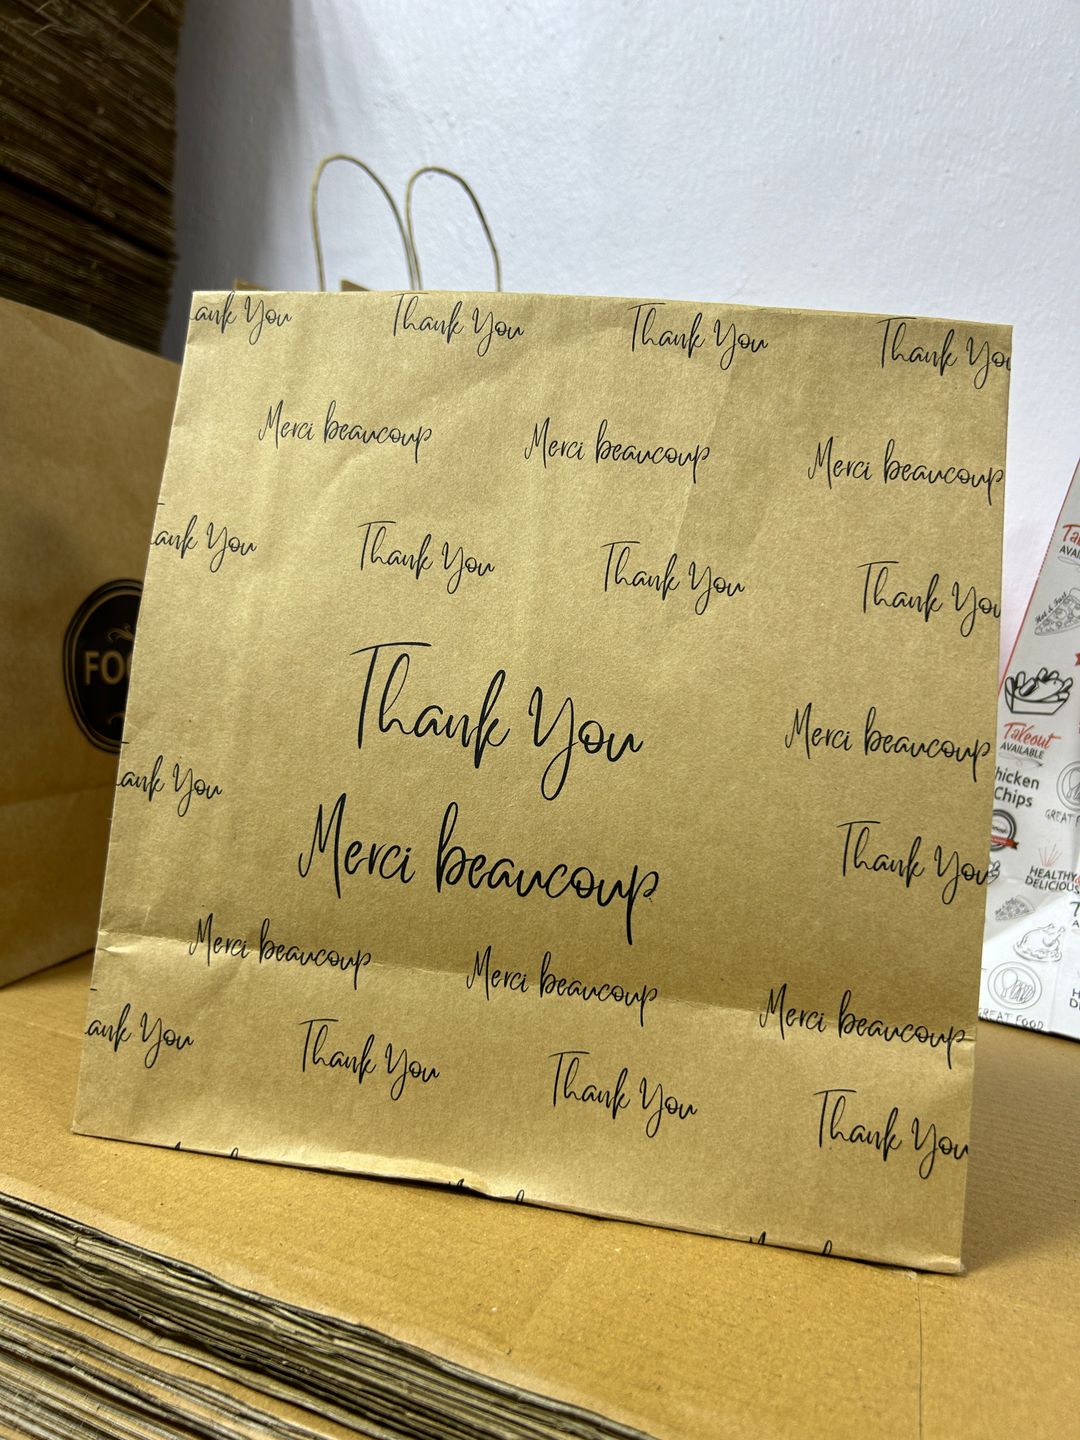 ank You
Thank You
Thank You
Thank You
Merci beaucoup
Merci beaucoup
Merci beaucoup
ank You
Thank You
Thank You
Thank You
Thank You
Merci beaucoup
Merci beaucoup
ank You
Thank You
Merci beaucoup
Merci beaucoup
Merci beaucoup
ank You
Thank You
Thank You
Thank You
FOO
Takeout
AVAILABLE
hicken
Chips
GREAT F
HEALTHY
DELICIOUS
GREAT FOOD